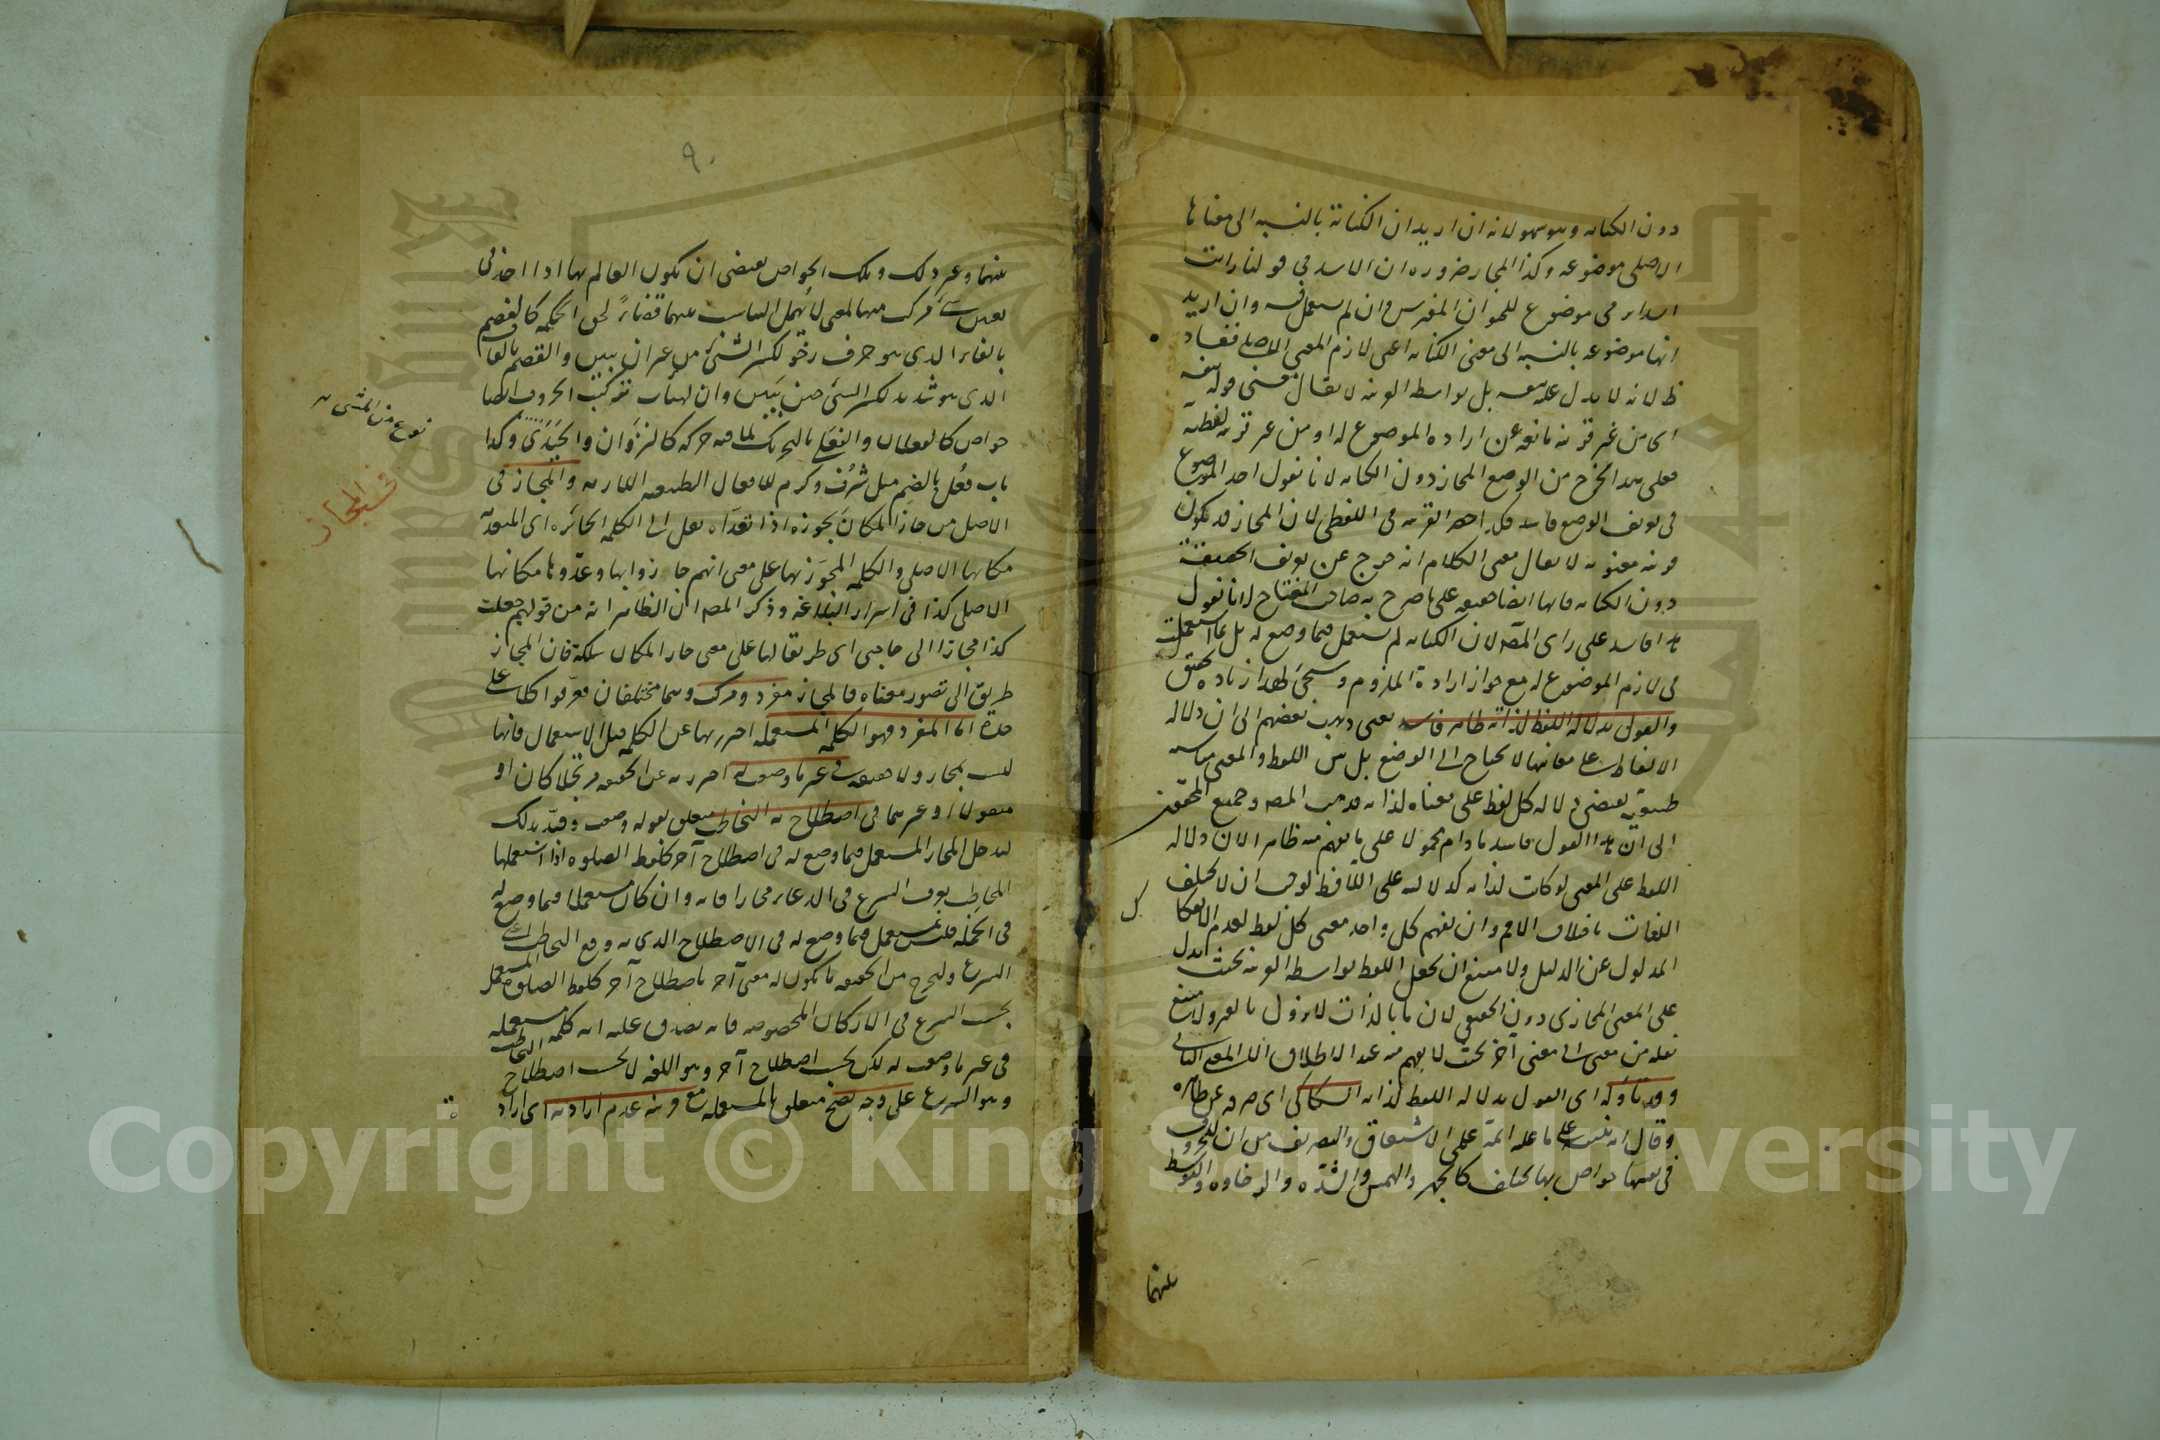 دون الكناية وهو سهو لانه ان اريد ان الكناية بالنسبة الى معناها
الاصلى موضوعة وكذا المجاز ضرورة ان الاسد فى قولنا رايت
اسدا يرمى موضوع للحيوان المفترس وان لم يستعمل فيه وان اريد
انها موضوعة بالنسبة الى معنى الكناية اعنى لازم المعنى الاصلى ففساده
ظ لانه لا يدل عليه بنفسه بل بواسطة القرينة لا يقال معنى قوله بنفسه
اى من غير قرينة مانعة عن ارادة الموضوع له او من غير قرينة لفظية
فعلى هذا يخرج من الوضع المجاز دون الكناية لانا نقول اخذ الموضوع
فى تعريف الوضع فاسد وكذا حصر القرينة فى اللفظى لان المجاز قد يكون
قرينته معنوية لا يقال معنى الكلام انه خرج عن تعريف الحقيقة
دون الكناية فانها ايضا حقيقة على ما صرح به صاحب المفتاح لانا نقول
هذا فاسد على راى المصه لان الكناية لم تستعمل فيما وضع له بل انما استعملت
فى لازم الموضوع له مع جواز ارادة الملزوم وسيجئ لهذا زيادة تحقيق
والقول بدلالة اللفظ لذاته ظاهره فاسد يعنى ذهب بعضهم الى ان دلالة
الالفاظ على معانيها لا تحتاج الى الوضع بل بين اللفظ والمعنى مناسبة
طبيعية يقتضى دلالة كل لفظ على معناه لذاته فذهب المصه وجميع المحققين
الى ان هذا القول فاسد ما دام محمولا على ما يفهم منه ظاهرا لان دلالة
اللفظ على المعنى لو كانت لذاته كدلالته على اللافظ لوجب ان لا يختلف
اللغات باختلاف الامم وان يفهم كل واحد معنى كل لفظ لعدم انفكاك
المدلول عن الدليل ولامتنع ان يجعل اللفظ بواسطة القرينة بحيث يدل
على المعنى المجازى دون الحقيقى لان ما بالذات لا يزول بالغير ولامتنع
نقله من معنى الى معنى آخر بحيث لا يفهم منه عند الاطلاق الا المعنى الثانى
وقد تاوله اى القول بدلالة اللفظ لذاته السكاكى اى صرفه عن ظاهره
وقال انه تنبيه على ما عليه ائمة علمى الاشتقاق والتصريف من ان للحروف
فى انفسها خواص بها تختلف كالجهر والهمس والشدة والرخاوة والتوسط
بينهما
٩٠
بينهما وغير ذلك وتلك الخواص يقتضى ان يكون العالم بها اذا اخذ فى
تعيين شئ مركب منها لمعنى لا يهمل التناسب بينهما قضاءً لحق الحكمة كالفصم
بالفاء الذى هو حرف رخو لكسر الشئ من غير ان يبين والقصم بالقاف
الذى هو شديد لكسر الشئ حتى يبين وان لهيئات تركيب الحروف ايضا
خواص كالفعلان والفعلى بالتحريك لما فيه حركة كالنزوان والحيدى وكذا
باب فعُل بالضم مثل شرُف وكرم للافعال الطبيعية اللازمة والمجاز فى
الاصل من جاز المكان يجوزه اذا تعداه نقل الى الكلمة الجائزة اى المتعدية
مكانها الاصلى والكلمة المجوز بها على معنى انهم جازوا بها وعدوها مكانها
الاصلى كذا فى اسرار البلاغة وذكر المصه ان الظاهر انه من قولهم جعلت
كذا مجازا الى حاجتى اى طريقا لها على معنى جاز المكان سلكه فان المجاز
طريق الى تصور معناه فالمجاز مفرد ومركب وهما مختلفان فعرفوا كلا على
حدة اما المفرد فهو الكلمة المستعملة احترز بها عن الكلمة قبل الاستعمال فانها
ليست بمجاز ولا حقيقة فى غير ما وضعت له احترز به عن الحقيقة مرتجلا كان او
منقولا او غيرهما فى اصطلاح به التخاطب متعلق بقوله وضعت وقيد بذلك
ليدخل المجاز المستعمل فيما وضع له فى اصطلاح آخر كلفظ الصلوة اذا استعملها
المخاطب بعرف الشرع فى الدعاء مجازا فانه وان كان مستعملا فيما وضع له
فى الجملة فليس بمستعمل فيما وضع له فى الاصطلاح الذى به وقع التخاطب اعنى
الشرع وليخرج من الحقيقة ما يكون له معنى آخر باصطلاح آخر كلفظ الصلوة المستعمل
بحسب الشرع فى الاركان المخصوصة فانه يصدق عليه انه كلمة مستعملة
فى غير ما وضعت له لكن بحسب اصطلاح آخر وهو اللغة لا بحسب اصطلاح التخاطب
وهو الشرع على وجه يصح متعلق بالمستعملة مع قرينة عدم ارادته اى ارادة
نوع من المشى
فى المجاز
Copyright © King Saud University